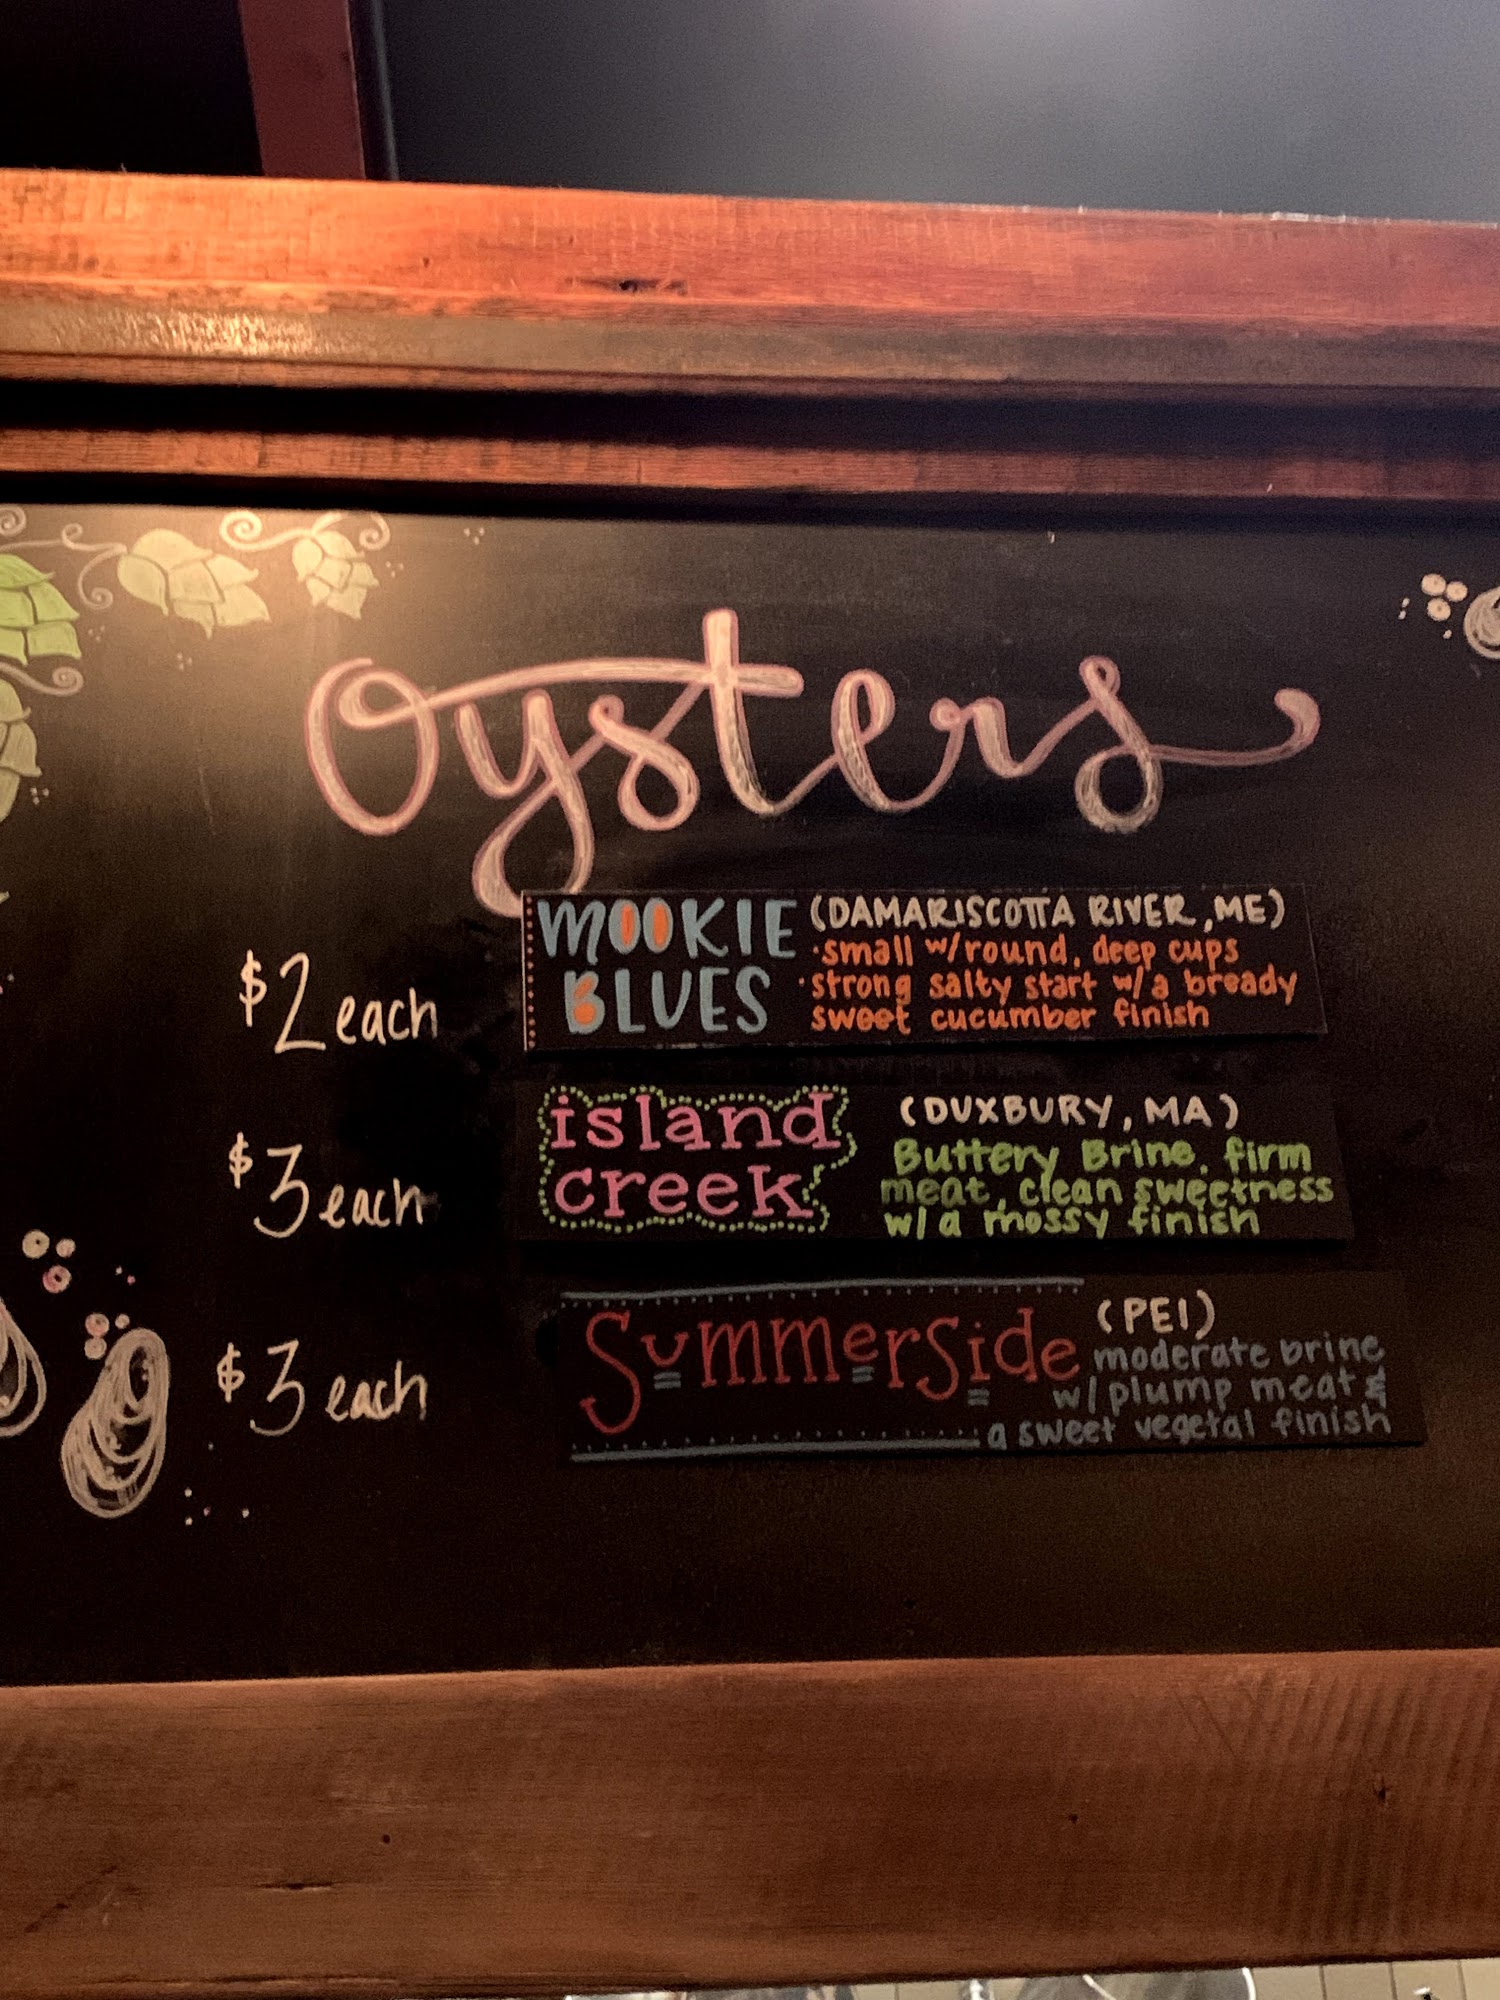 oysters
$2 each
MOOKIE BLUES
(DAMARISCOTTA RIVER, ME)
·small w/round, deep cups
·strong salty start w/a bready
sweet cucumber finish
$3 each
island creek
(DUXBURY, MA)
Buttery Brine, firm
meat, clean sweetness
w/a mossy finish
$3 each
Summerside
(PEI)
moderate brine
w/plump meat &
a sweet vegetal finish